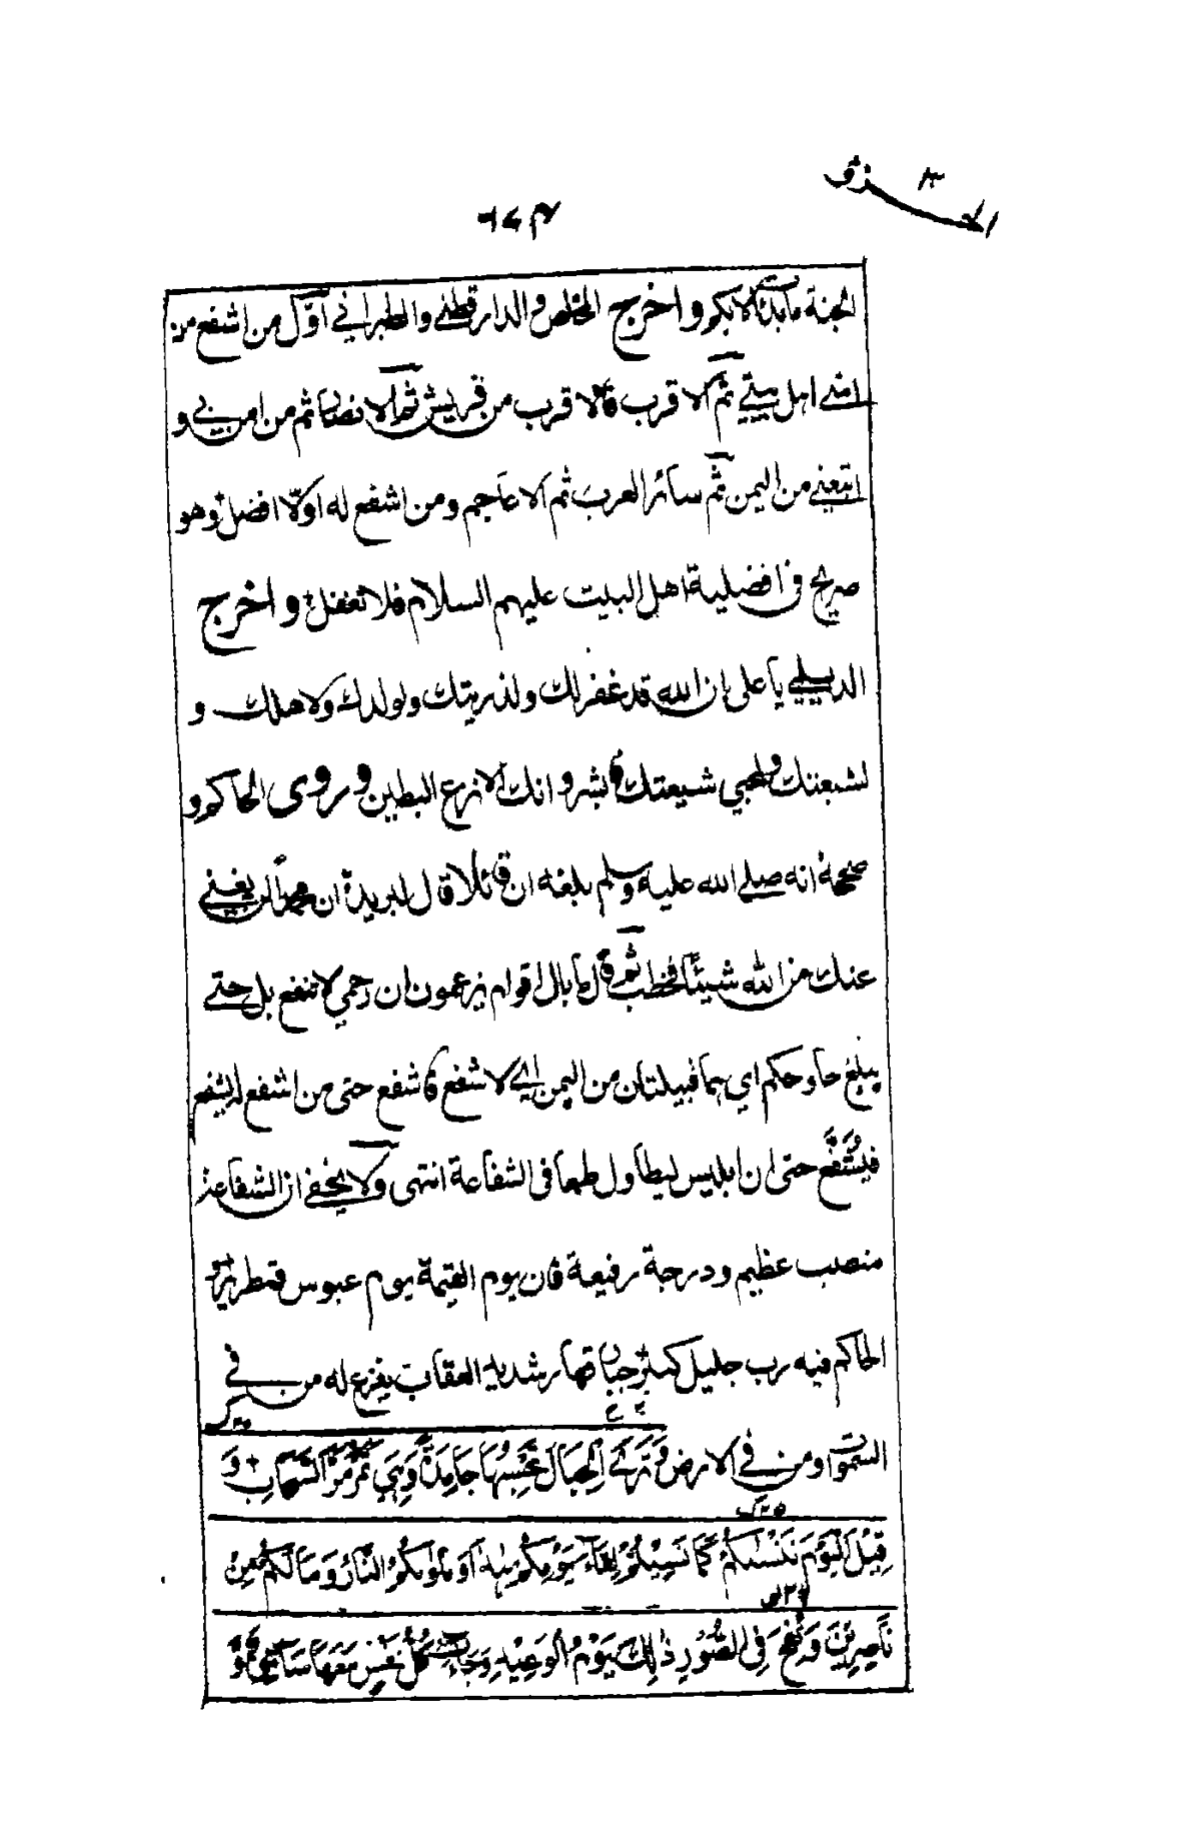 ٦٧٣
الجنة ما بدئ الا بكم واخرج المخلص والدارقطني والطبراني اول من اشفع من
امتي اهل بيتي ثم الاقرب فالاقرب من قريش ثم الانصار ثم من امن بي و
اتبعني من اليمن ثم سائر العرب ثم الاعاجم ومن اشفع له اولا افضل وهو
صريح في افضلية اهل البيت عليهم السلام فلا تغفل واخرج
الديلمي يا على ان الله قد غفر لك ولذريتك ولولدك ولاهلك و
لشيعتك ولمحبي شيعتك فابشر وانك الانزع البطين وروى الحاكم و
صححه انه صلے الله عليه وسلم بلغه ان قائلا قال لبريدة ان محمدا لن يغني
عنك من الله شيئا فخطب ثم قال ما بال اقوام يزعمون ان رحمي لا تنفع بل حتى
يبلغ حا وحكم اي هما قبيلتان من اليمن اني لا شفع فاشفع حتى من اشفع له ليشفع
فيُشَفَّع حتى ان ابليس ليطاول طمعا في الشفاعة انتهى ولا يخفى ان الشفاعة
منصب عظيم ودرجة رفيعة فان يوم القيمة يوم عبوس قمطرير و
الحاكم فيه رب جليل كبير جبار قهار شديد العقاب يفزع له من في
السموات ومن في الارض وَتَرَى الْجِبَالَ تَحْسَبُهَا جَامِدَةً وَهِيَ تَمُرُّ مَرَّ السَّحَابِ وَ
قِيْلَ الْيَوْمَ نَنْسٰىكُمْ كَمَا نَسِيْتُمْ لِقَاءَ يَوْمِكُمْ هٰذَا وَمَأْوٰىكُمُ النَّارُ وَمَا لَكُمْ مِنْ
نَاصِرِيْنَ وَنُفِخَ فِي الصُّوْرِ ذٰلِكَ يَوْمُ الْوَعِيْدِ وَجَاءَتْ كُلُّ نَفْسٍ مَعَهَا سَائِقٌ وَّ